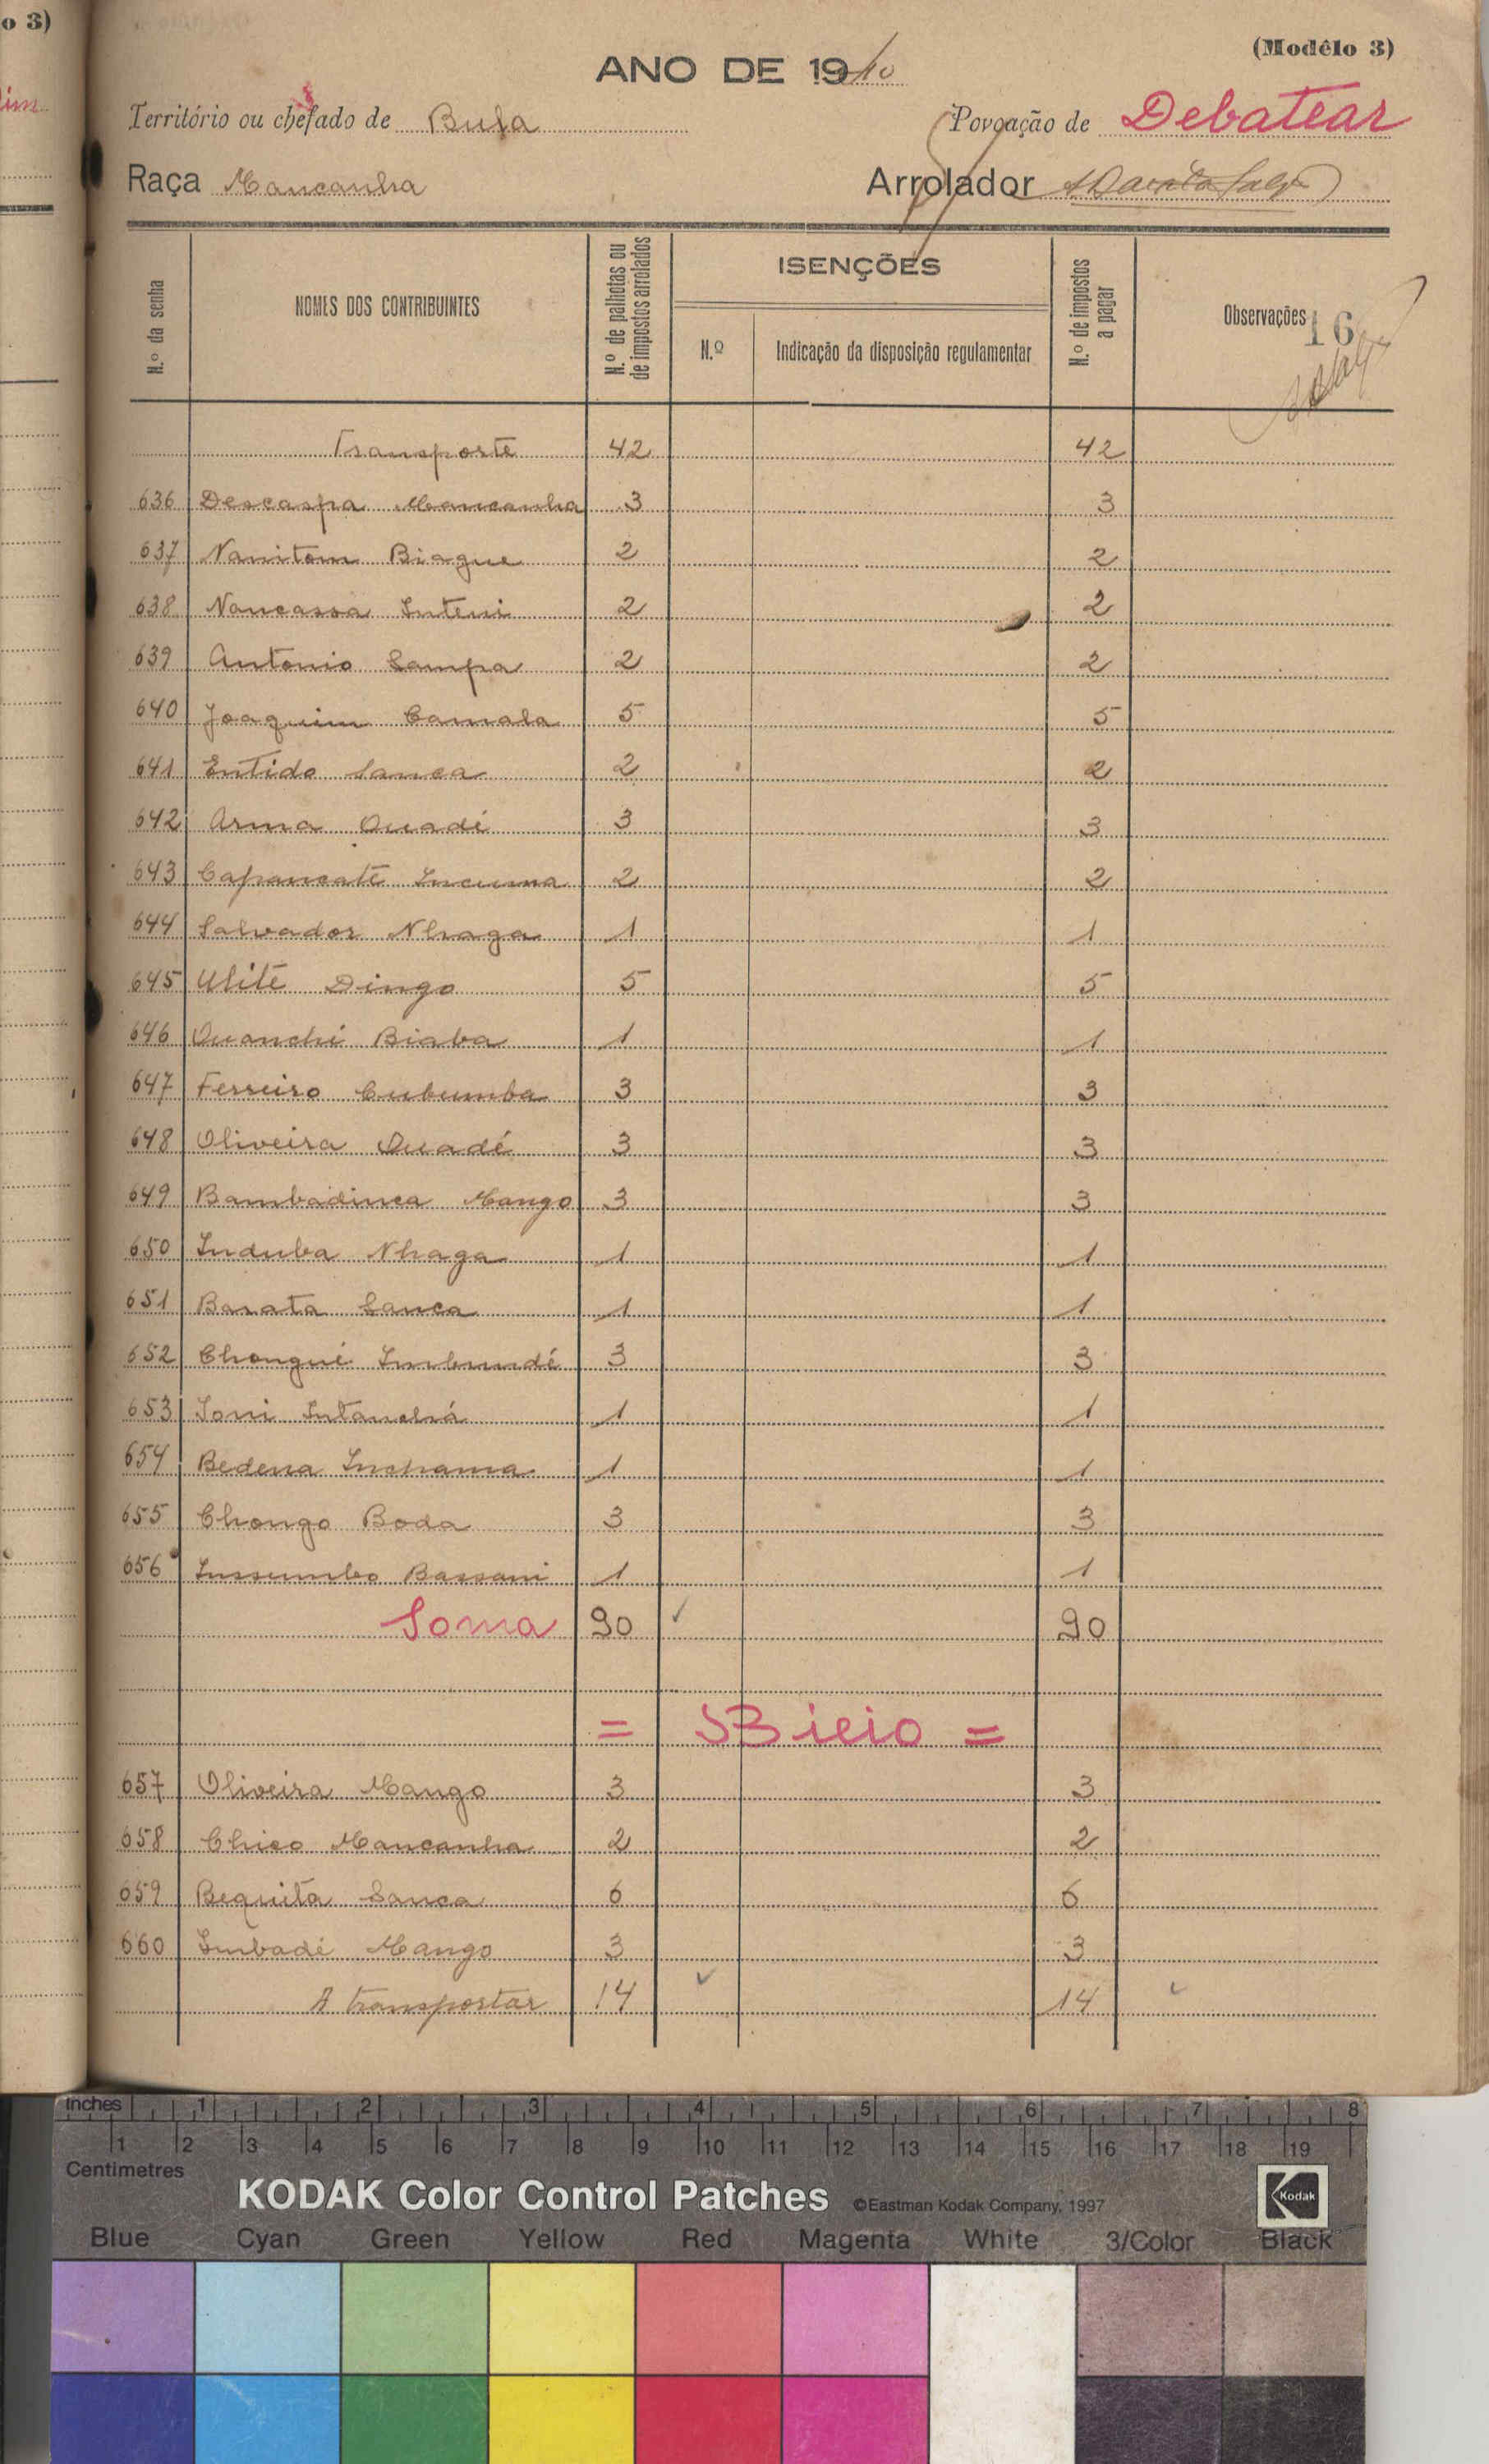 o 3)
(Modêlo 3)
ANO DE 1940
Território ou chefado de Bula
Povoação de Debatear
Raça Mancanha
Arrolador
N.º da senha
NOMES DOS CONTRIBUINTES
N.º de palhotas ou de impostos arrolados
ISENÇÕES
N.º
Indicação da disposição regulamentar
N.º de impostos a pagar
Observações
16
Transporte 42 42
636 Descaspa Mancanha 3 3
637 Nanitom Biague 2 2
638 Nancassa Inteni 2 2
639 Antonio Sampa 2 2
640 Joaquim Camala 5 5
641 Entido Sanca 2 2
642 Arma Ouadé 3 3
643 Capancaté Incuma 2 2
644 Salvador Nhaga 1 1
645 Ulité Dingo 5 5
646 Ouanché Biaba 1 1
647 Ferreiro Cubumba 3 3
648 Oliveira Ouadé 3 3
649 Bambadinca Mango 3 3
650 Induba Nhaga 1 1
651 Barata Sanca 1 1
652 Chongué Imbundé 3 3
653 Toni Intanchá 1 1
654 Bedena Inchama 1 1
655 Chongo Boda 3 3
656 Insumbo Bassani 1 1
Soma 90 90
= Bicio =
657 Oliveira Mango 3 3
658 Chico Mancanha 2 2
659 Bequita Sanca 6 6
660 Imbadé Mango 3 3
A transportar 14 14
Inches 1 2 3 4 5 6 7 8
1 2 3 4 5 6 7 8 9 10 11 12 13 14 15 16 17 18 19
Centimetres
KODAK Color Control Patches ©Eastman Kodak Company, 1997 Kodak
Blue Cyan Green Yellow Red Magenta White 3/Color Black